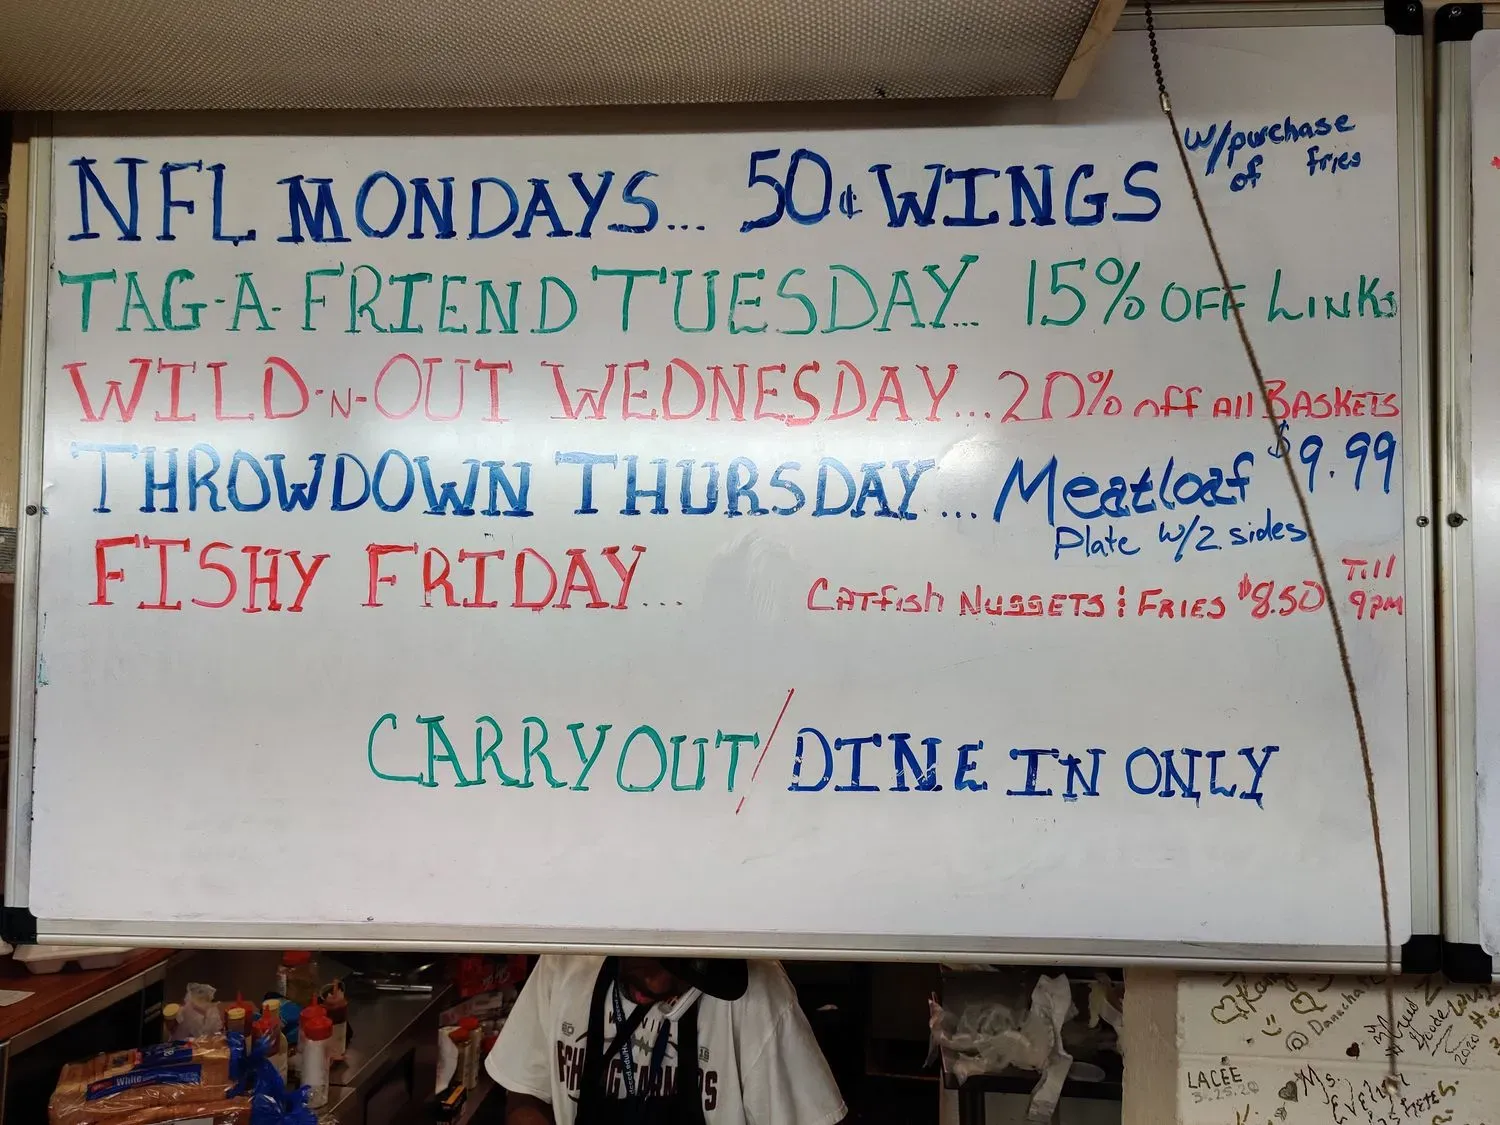 NFL MONDAYS... 50¢ WINGS w/purchase of fries
TAG-A-FRIEND TUESDAY... 15% OFF LINKS
WILD-N-OUT WEDNESDAY... 20% off All BASKETS
THROWDOWN THURSDAY... Meatloaf $9.99
Plate w/2 sides
FISHY FRIDAY... CATfish NUGGETS & FRIES $8.50 Till 9pm
CARRYOUT/DINE IN ONLY
White
LACEE
3.25.20
Ms.
2020